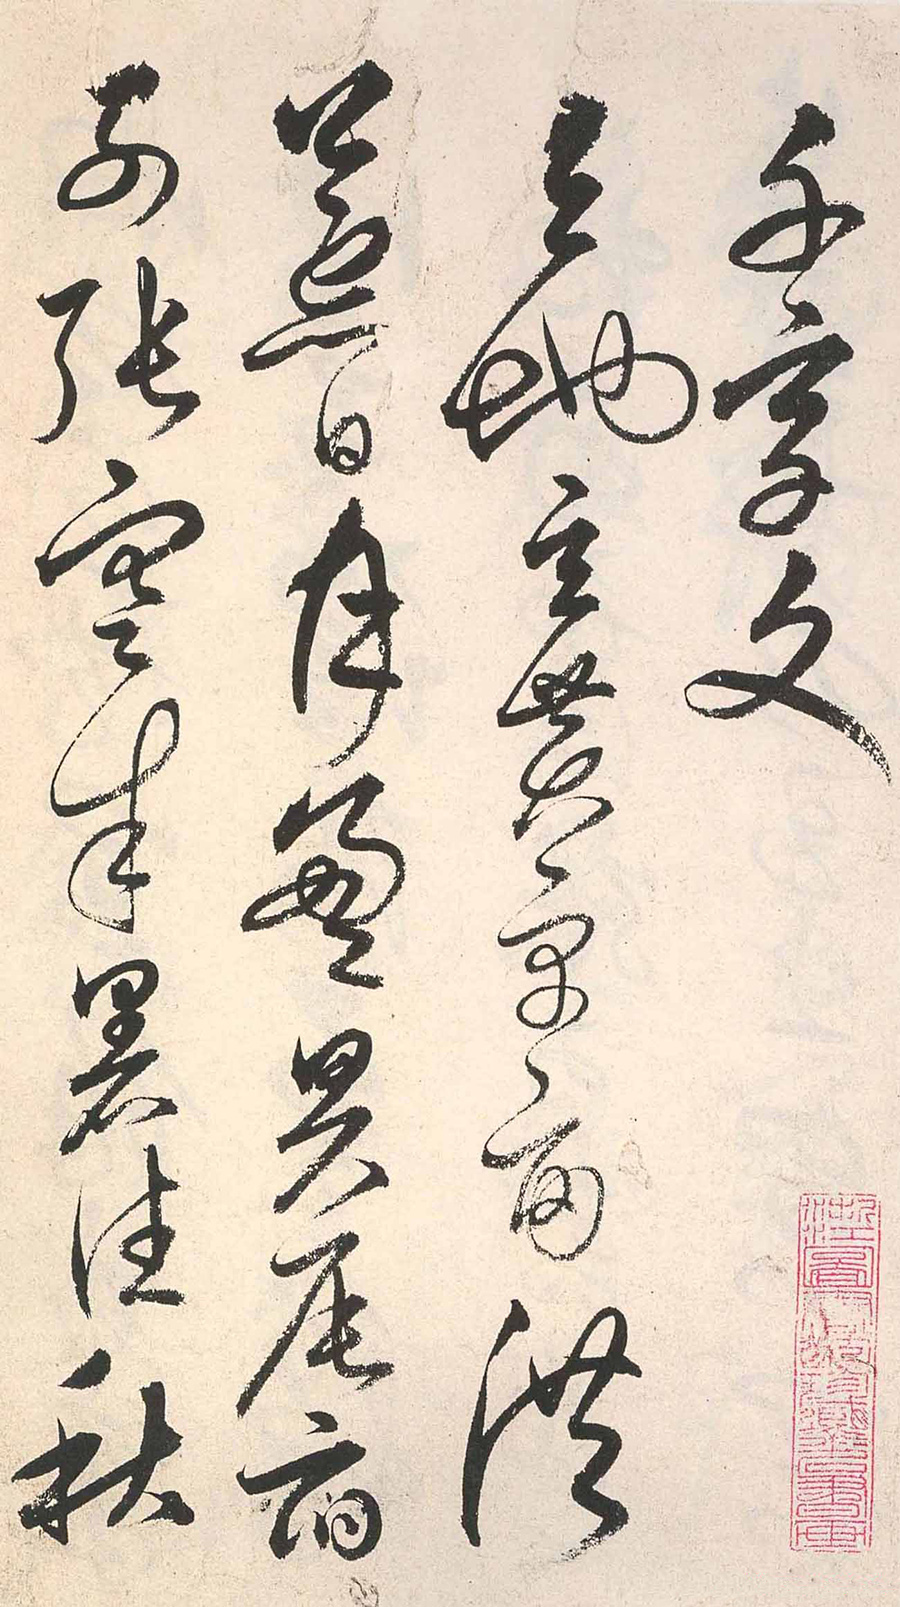 千字文
天地玄黄宇宙洪
荒日月盈昃辰宿
列张寒来暑往秋